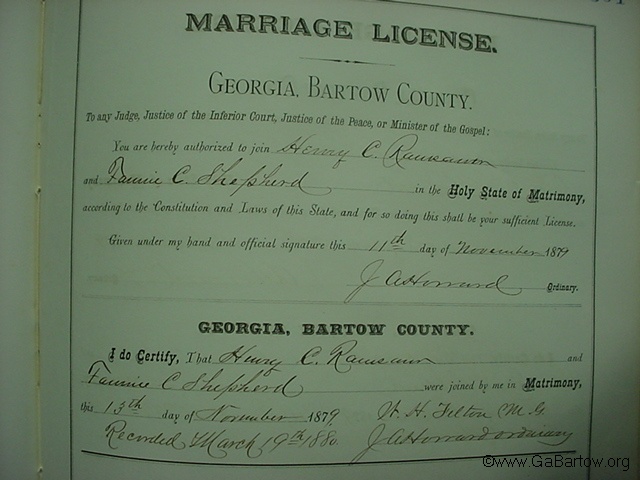 MARRIAGE LICENSE.
GEORGIA, BARTOW COUNTY.
To any Judge, Justice of the Inferior Court, Justice of the Peace, or Minister of the Gospel:
You are hereby authorized to join Henry C. Ramsaur
and Fannie C. Shepherd in the Holy State of Matrimony,
according to the Constitution and Laws of this State, and for so doing this shall be your sufficient License.
Given under my hand and official signature this 11th day of November 1879
J A Howard Ordinary.
GEORGIA, BARTOW COUNTY.
I do Certify, That Henry C. Ramsaur and
Fannie C Shepherd were joined by me in Matrimony,
this 13th day of November 1879. W. H. Felton M. G.
Recorded March 9th 1880. J A Howard ordinary
©www.GaBartow.org